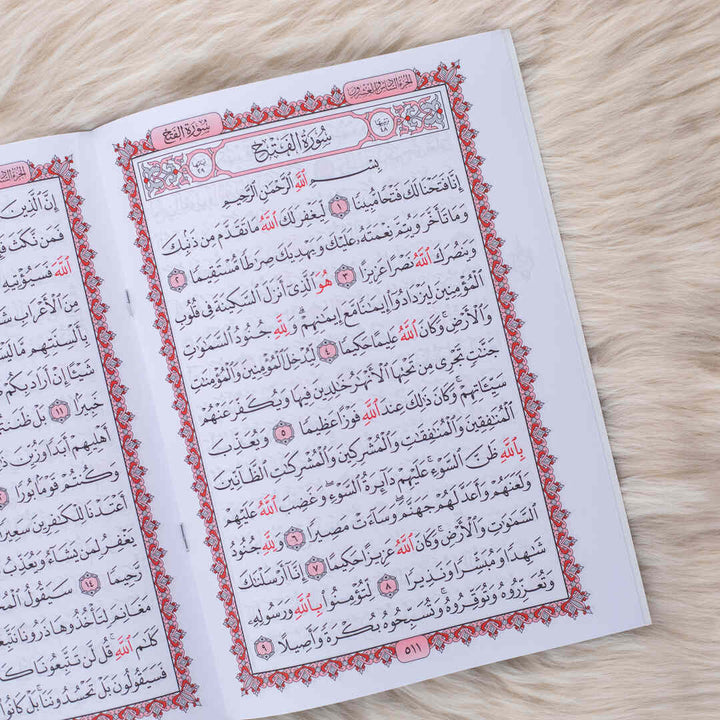 الجُزْءُ السَّادِسُ وَالعِشْرُونَ
سُورَةُ الفَتْحِ
ترتيبها ٤٨ سُورَةُ الْفَتْحِ آياتها ٢٩
بِسْمِ ٱللَّهِ ٱلرَّحْمَٰنِ ٱلرَّحِيمِ
إِنَّا فَتَحْنَا لَكَ فَتْحًا مُّبِينًا ١ لِّيَغْفِرَ لَكَ ٱللَّهُ مَا تَقَدَّمَ مِن ذَنۢبِكَ
وَمَا تَأَخَّرَ وَيُتِمَّ نِعْمَتَهُۥ عَلَيْكَ وَيَهْدِيَكَ صِرَٰطًا مُّسْتَقِيمًا ٢
وَيَنصُرَكَ ٱللَّهُ نَصْرًا عَزِيزًا ٣ هُوَ ٱلَّذِىٓ أَنزَلَ ٱلسَّكِينَةَ فِى قُلُوبِ
ٱلْمُؤْمِنِينَ لِيَزْدَادُوٓا۟ إِيمَٰنًا مَّعَ إِيمَٰنِهِمْ ۗ وَلِلَّهِ جُنُودُ ٱلسَّمَٰوَٰتِ
وَٱلْأَرْضِ ۚ وَكَانَ ٱللَّهُ عَلِيمًا حَكِيمًا ٤ لِّيُدْخِلَ ٱلْمُؤْمِنِينَ وَٱلْمُؤْمِنَٰتِ
جَنَّٰتٍ تَجْرِى مِن تَحْتِهَا ٱلْأَنْهَٰرُ خَٰلِدِينَ فِيهَا وَيُكَفِّرَ عَنْهُمْ
سَيِّـَٔاتِهِمْ ۚ وَكَانَ ذَٰلِكَ عِندَ ٱللَّهِ فَوْزًا عَظِيمًا ٥ وَيُعَذِّبَ
ٱلْمُنَٰفِقِينَ وَٱلْمُنَٰفِقَٰتِ وَٱلْمُشْرِكِينَ وَٱلْمُشْرِكَٰتِ ٱلظَّآنِّينَ
بِٱللَّهِ ظَنَّ ٱلسَّوْءِ ۚ عَلَيْهِمْ دَآئِرَةُ ٱلسَّوْءِ ۖ وَغَضِبَ ٱللَّهُ عَلَيْهِمْ
وَلَعَنَهُمْ وَأَعَدَّ لَهُمْ جَهَنَّمَ ۖ وَسَآءَتْ مَصِيرًا ٦ وَلِلَّهِ جُنُودُ
ٱلسَّمَٰوَٰتِ وَٱلْأَرْضِ ۚ وَكَانَ ٱللَّهُ عَزِيزًا حَكِيمًا ٧ إِنَّآ أَرْسَلْنَٰكَ
شَٰهِدًا وَمُبَشِّرًا وَنَذِيرًا ٨ لِّتُؤْمِنُوا۟ بِٱللَّهِ وَرَسُولِهِۦ
وَتُعَزِّرُوهُ وَتُوَقِّرُوهُ ۚ وَتُسَبِّحُوهُ بُكْرَةً وَأَصِيلًا ٩
٥١١
إِنَّ ٱلَّذِينَ
فَمَن نَّكَثَ
ٱللَّهَ فَسَيُؤْتِيهِ
مِنَ ٱلْأَعْرَابِ
بِأَلْسِنَتِهِم مَّا
شَيْـًٔا إِنْ أَرَادَ بِكُمْ
خَبِيرًۢا ١١ بَلْ
أَهْلِيهِمْ أَبَدًا وَزُيِّنَ
وَكُنتُمْ قَوْمًۢا بُورًا
أَعْتَدْنَا لِلْكَٰفِرِينَ
يَغْفِرُ لِمَن يَشَآءُ وَيُعَذِّبُ
رَّحِيمًا ١٤ سَيَقُولُ
مَغَانِمَ لِتَأْخُذُوهَا ذَرُونَا
كَلَٰمَ ٱللَّهِ ۚ قُل لَّن تَتَّبِعُونَا
فَسَيَقُولُونَ بَلْ تَحْسُدُونَنَا ۚ بَلْ كَانُوا۟